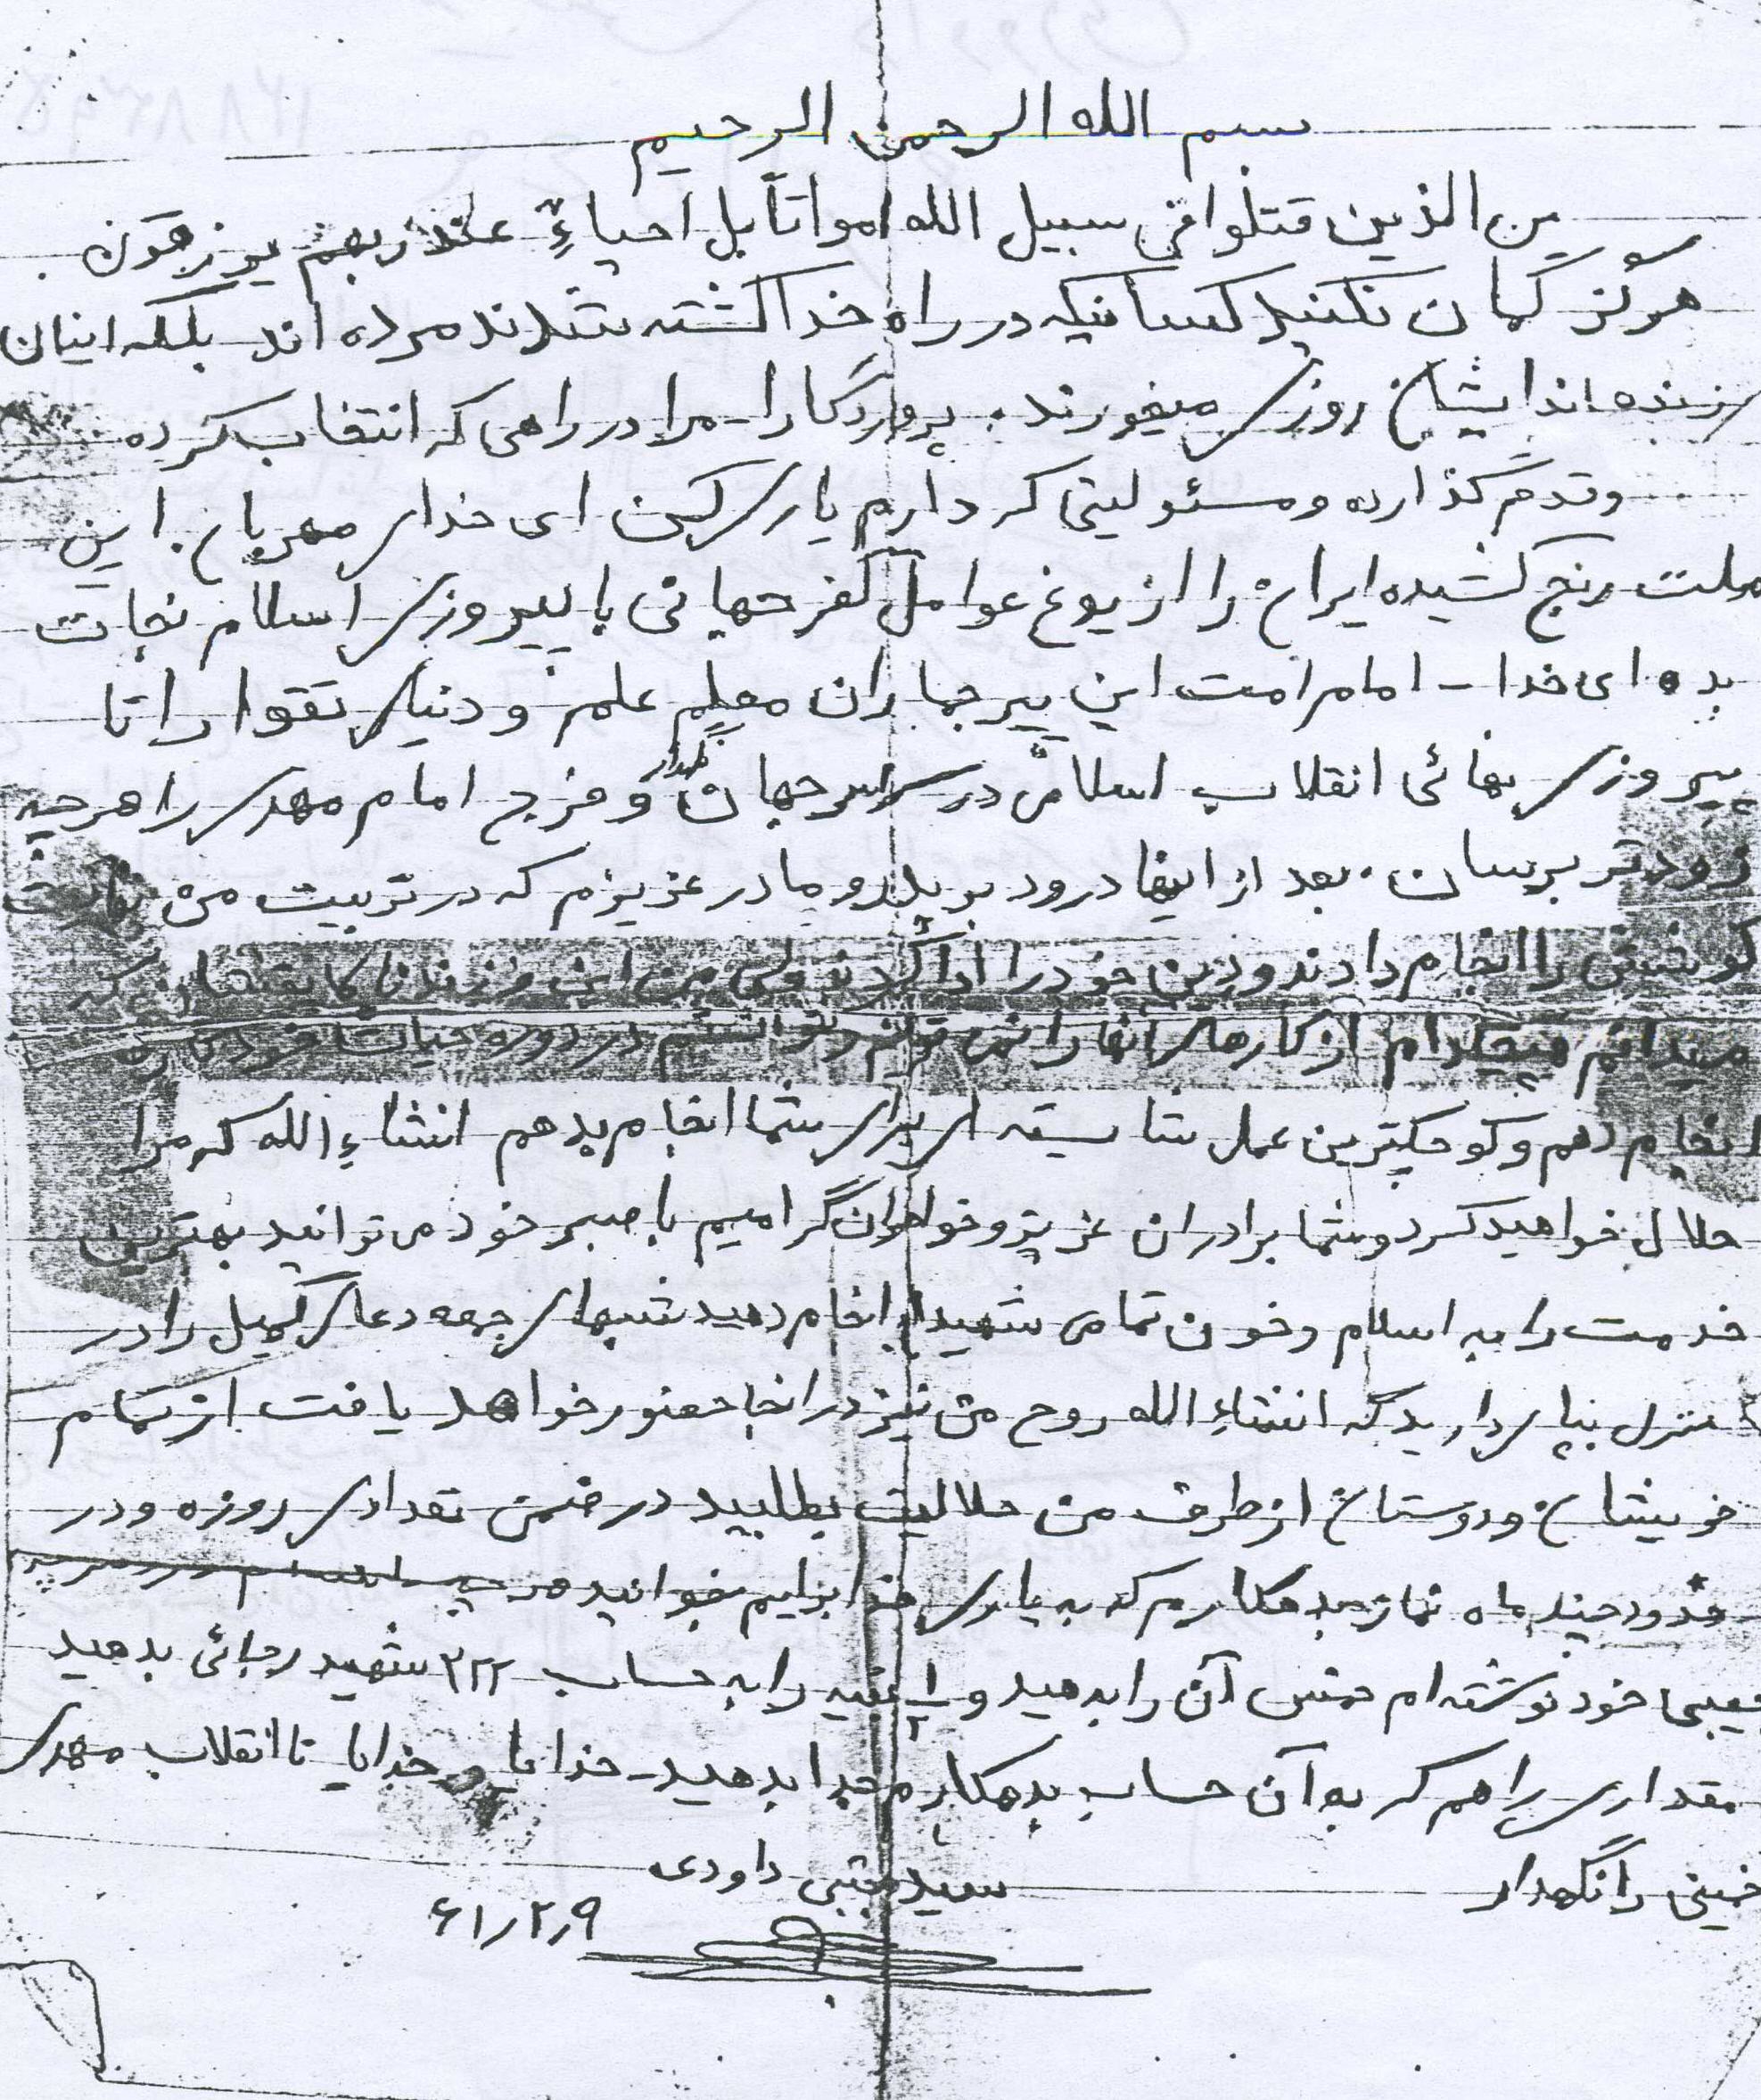 بسم الله الرحمن الرحیم
الذین قتلوا فی سبیل الله امواتاً بل احیاءٌ عند ربهم یرزقون .
هرگز گمان نکنید کسانیکه در راه خدا کشته شدند مرده اند بلکه اینان
زنده اند ایشان روزی میخورند . پروردگارا - مرا در راهی که انتخاب کرده
و قدم گذارده و مسئولیتی که دارم یاری کن ای خدای مهربان . این
ملت رنج کشیده ایران را از یوغ عوامل کفر جهانی با پیروزی اسلام نجات
بده ای خدا - امام امت این پیر جماران معلم علم و دنیای تقوا را تا
پیروزی نهائی انقلاب اسلامی در سراسر جهان نگهدار و فرج امام مهدی را هر چه
زودتر برسان . بعد از اینها درود بر پدر و مادر عزیزم که در تربیت من نهایت
کوشش را انجام دادند و دین خود را ادا کردند ولی من این فرزندتان که
میدانم هیچکدام از کارهای آنها را نمی توانم و نتوانستم در دوره حیات خود
انجام دهم و کوچکترین عمل شایسته ای برای شما انجام بدهم انشاءالله که مرا
حلال خواهید کرد و شما برادران عزیز و خواهران گرامیم با صبر خود می توانید بهترین
خدمت را به اسلام و خون تمامی شهیدان انجام دهید شبهای جمعه دعای کمیل را در
منزل بپای دارید که انشاءالله روح من نیز در آنجا حضور خواهد یافت از تمام
خویشان و دوستان از طرف من حلالیت بطلبید در ضمن تعدادی روزه و در
حدود چند ماه نماز بدهکارم که به یاری خدا برایم بخوانید
جیبی خود نوشته ام خمس آن را بدهید و بقیه را به حساب ۲۲۲ شهید رجائی بدهید
مقداری را هم که به آن حساب بدهکارم جدا بدهید - خدایا خدایا تا انقلاب مهدی
خمینی را نگهدار
سید مجتبی داودی
۶۱/۲/۹